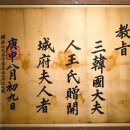 教旨
三韓國大夫
人王氏贈開
城府夫人者
庚申八月初九日